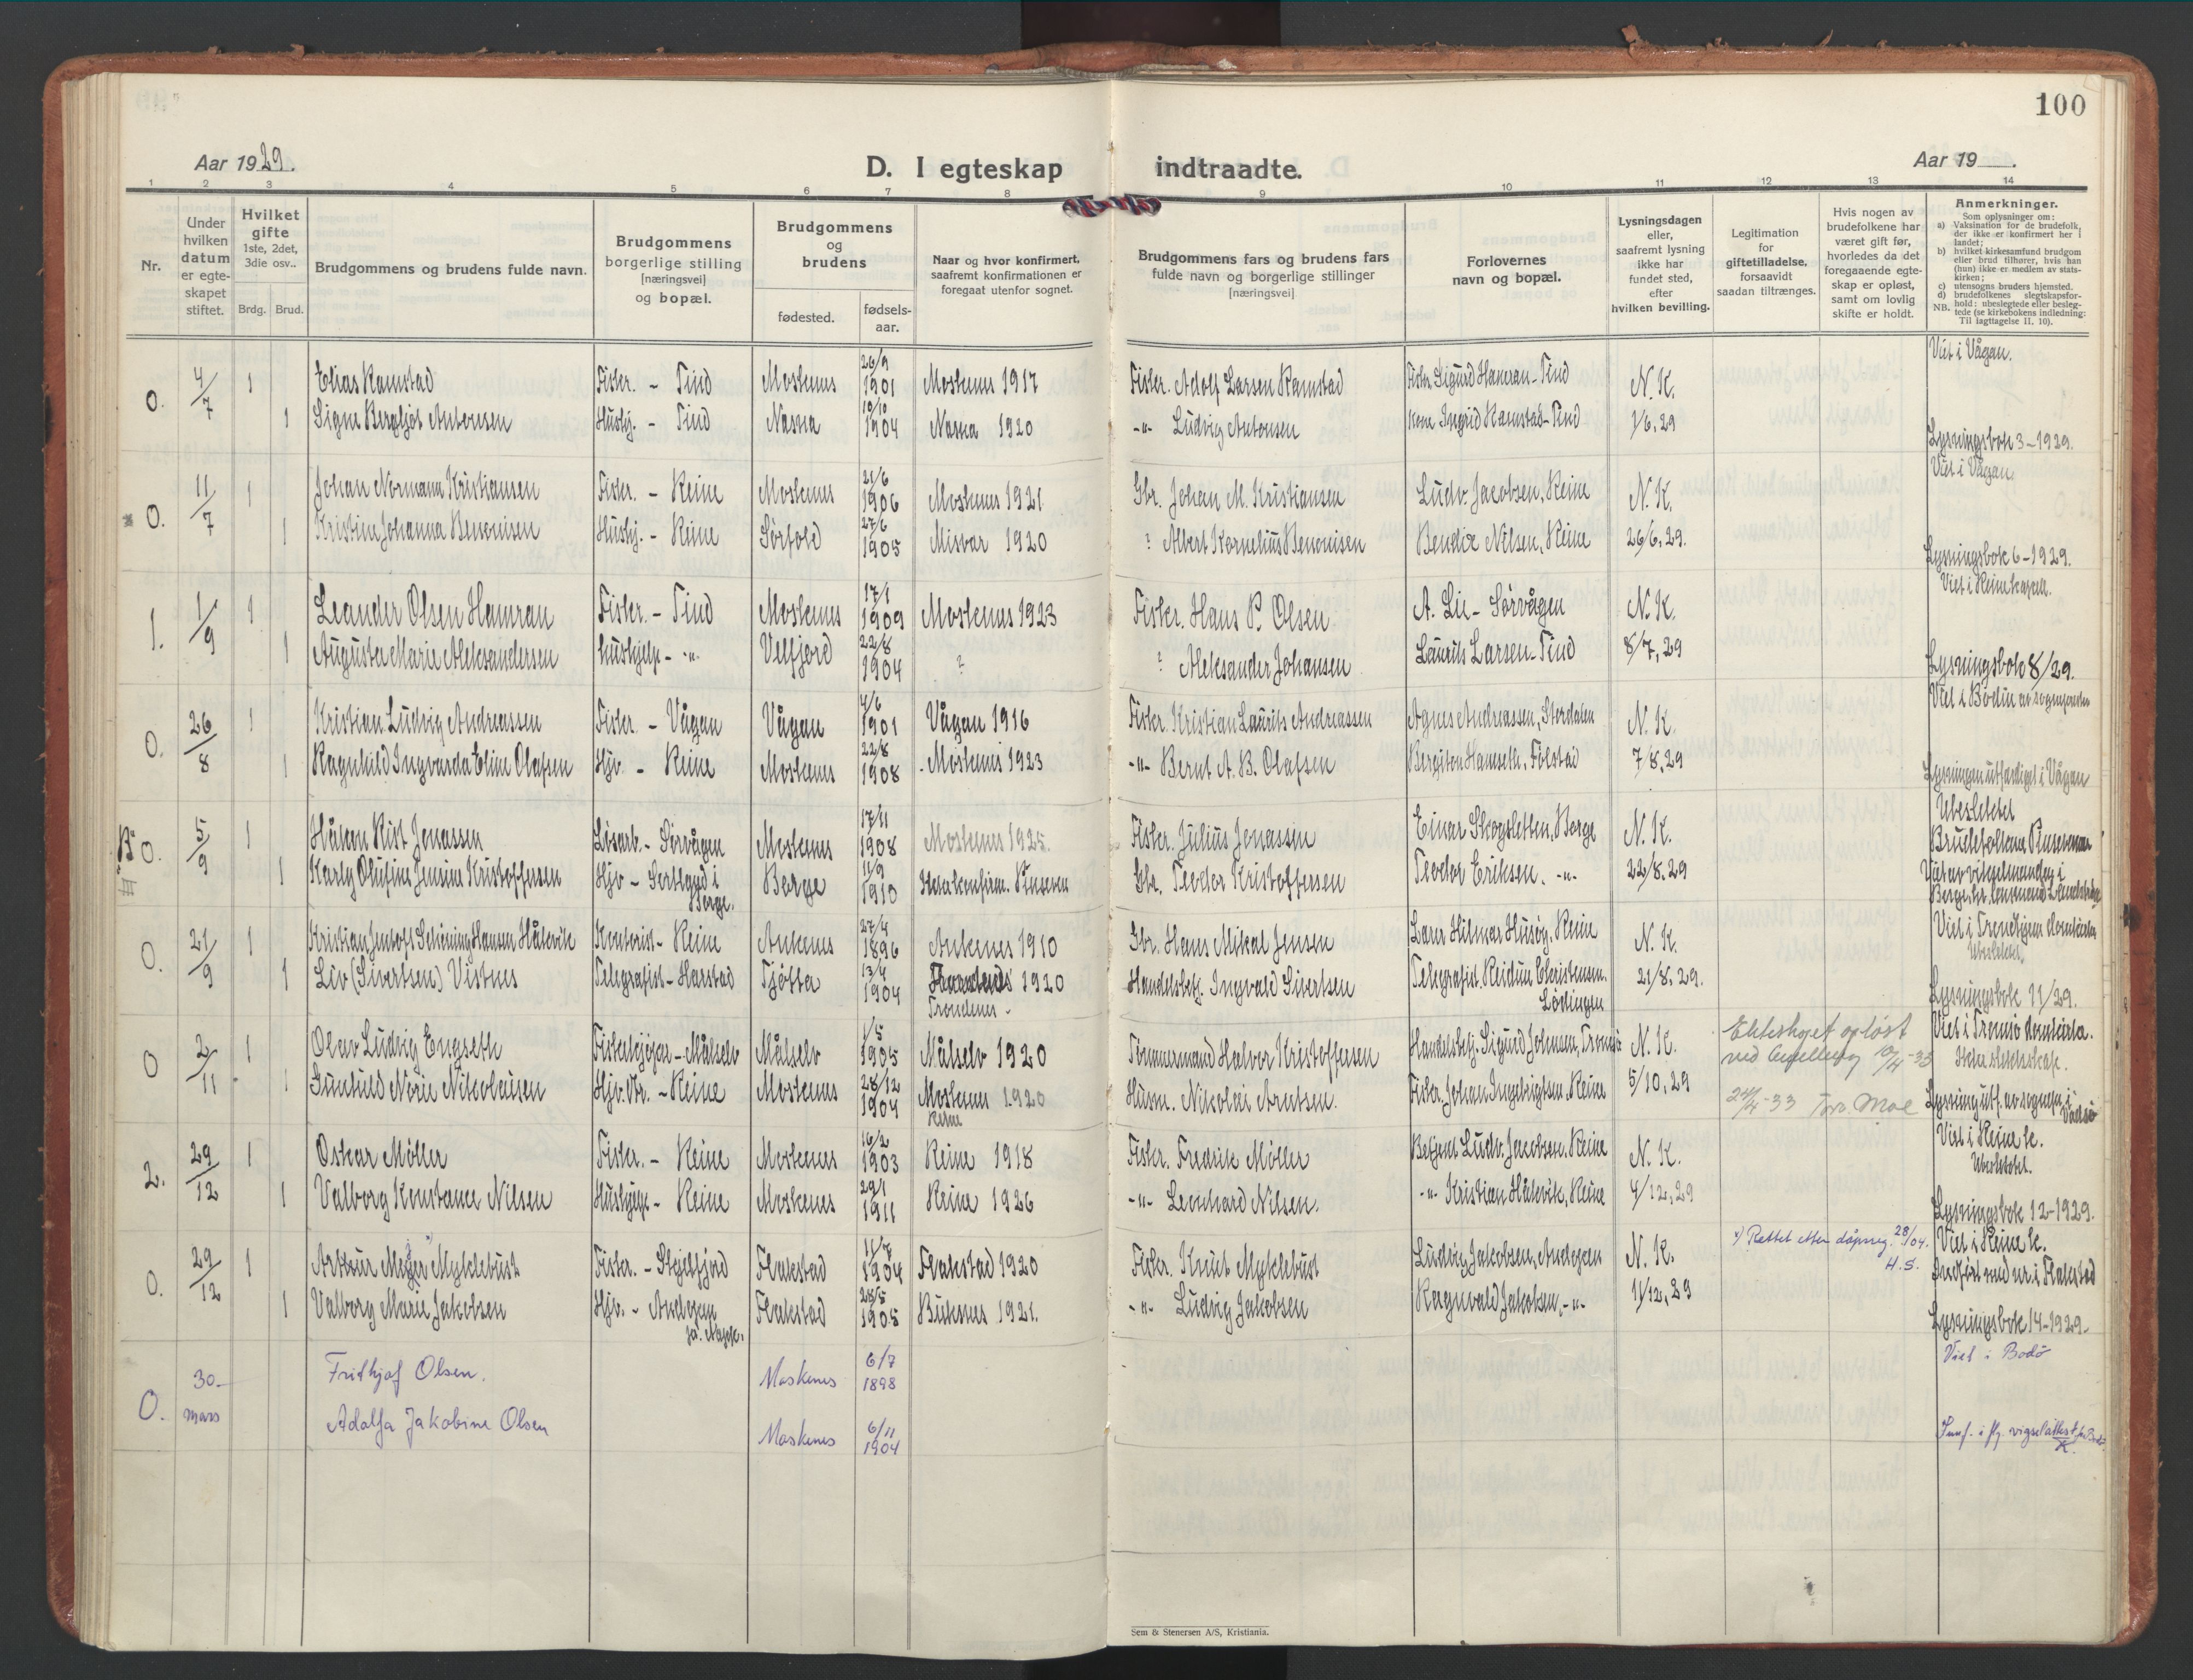 100
Aar 1929.
D. I egteskap indtraadte.
Aar 19   .
1 2 3 4 5 6 7 8 9 10 11 12 13 14
Nr.
Under hvilken datum er egte-skapet stiftet.
Hvilket gifte 1ste, 2det, 3die osv..
Brdg. Brud.
Brudgommens og brudens fulde navn.
Brudgommens borgerlige stilling [næringsvei] og bopæl.
Brudgommens og brudens
fødested.
fødsels-aar.
Naar og hvor konfirmert, saafremt konfirmationen er foregaat utenfor sognet.
Brudgommens fars og brudens fars fulde navn og borgerlige stillinger [næringsvei]
Forlovernes navn og bopæl.
Lysningsdagen eller, saafremt lysning ikke har fundet sted, efter hvilken bevilling.
Legitimation for giftetilladelse, forsaavidt saadan tiltrænges.
Hvis nogen av brudefolkene har været gift før, hvorledes da det foregaaende egte-skap er opløst, samt om lovlig skifte er holdt.
Anmerkninger.
Som oplysninger om:
a) Vaksination for de brudefolk, der ikke er konfirmert her i landet;
b) hvilket kirkesamfund brudgom eller brud tilhører, hvis han (hun) ikke er medlem av stats-kirken;
c) utensogns bruders hjemsted.
d) brudefolkenes slegtskapsfor-hold: ubeslegtede eller besleg-tede (se kirkebokens indledning: Til iagttagelse II, 10).
NB.
Viet i Vågan.
0. 4/7 1 Elias Ramstad Fisker. - Tind Moskenes 26/9 1901 Moskenes 1917 Fisker. Adolf Larsen Ramstad Fisker Sigurd Hamran - Tind N. K.
1 Signe Bergljot Antonsen Hushj. - Tind Nesna 10/10 1904 Nesna 1920 -"- Ludvig Antonsen Kone Ingrid Ramstad - Tind 1/6, 29
Lysningsbok 3-1929.
Viet i Vågan
0. 11/7 1 Johan Normann Kristiansen Fisker. - Reine Moskenes 21/6 1906 Moskenes 1921 Gbr. Johan M. Kristiansen Ludv. Jacobsen, Reine N. K.
1 Kristine Johanna Benonisen Hushj. - Reine Sørfold 27/6 1905 Misvær 1920 ? Albert Kornelius Benonisen Bendix Nilsen, Reine 26/6, 29.
Lysningsbok 6-1929.
Viet i Reine kapell.
1. 1/9 1 Leander Olsen Hamran Fisker. - Tind Moskenes 17/1 1909 Moskenes 1923 Fisker. Hans P. Olsen A. Lie - Sørvågen N. K.
1 Augusta Marie Aleksandersen hushjelp - -"- Velfjord 22/8 1904 ? ? Aleksander Johansen Laurits Larsen - Tind 8/7, 29
Lysningsbok 8/29.
Viet i Bodin av sognepresten
0. 26/8 1 Kristian Ludvig Andreassen Fisker - Vågan Vågan 4/6 1901 Vågan 1916 Fisker Kristian Laurits Andreassen Agnes Andreassen, N. K.
1 Ragnhild Ingvarda Eline Olafsen Hjv. - Reine Moskenes 22/8 1908 Moskenes 1923 -"- Bernt A. B. Olafsen Bergiton Hamseth, Følstad 7/8, 29
Lysningen utferdiget i Vågan
Ubeslektet
0. 5/9 1 Håkon Rist Jonassen Løsarb. - Sørvågen Moskenes 17/11 1908 Moskenes 1925. Fisker. Julius Jonassen Einar Skogsletten, Borge N. K.
Brudefolkene Pinsevenner
1 Karly Olufine Jensine Kristoffersen Hjv - i Borge. Borge 11/9 1910 Ikke konfirm. Pinseven Gbr. Teodor Kristoffersen Teodor Eriksen. -"- 22/8. 29
Viet i Trondhjem domkirke
0. 21/9 1 Kristian Jentoft Schøning Hansen Hålevik Kontorist - Reine Ankenes 27/4 1896 Ankenes 1910 Gbr. Hans Mikal Jensen Lærer Hilmar Husøy, Reine N. K.
Ubeslektet.
1 Liv (Sivertsen) Vistnes Telegrafist - Harstad Tjøtta 13/4 1904 1920 Trondenes - Handelsbetj. Ingvald Sivertsen Telegrafist. Reidun Christensen. Lødingen 21/8, 29.
Lysningsbok 11/29.
0 2/11 1 Olav Ludvig Engseth Fiskekjøper - Målselv Målselv 1/5 1905 Målselv 1920 Tømmermand Halvor Kristoffersen Handelsbetj. Sigurd Johnsen, Tromsø N. K. Ekteskapet opløst ved bevilling 10/4-33 Viet i Tromsø domkirke.
Ikke slektskap.
1 Gunhild Norie Nikolaisen Hjv. - Reine Moskenes 28/12 1904 Moskenes 1920 Reine Husm. Nikolai Arntsen. Fisker Johan Ingebrigtsen, Reine 5/10, 29 24/4-33 Tov. Moe Lysning utf. av sognepr. i Vadsø
Viet i Reine k.
2. 29/12 1 Oskar Møller Fisker. - Reine Moskenes 16/2 1903 Reine 1918 Fisker. Fredrik Møller Betjent Ludv. Jacobsen, Reine N. K.
Ubeslektet.
1 Valborg Konstance Nilsen Hushjelp - Reine Moskenes 29/1 1911 Reine 1926 -"- Leonhard Nilsen. -"- Kristian Hålevik, Reine 4/12, 29
Lysningsbok 12-1929.
0. 29/12 1 Arthur Mejer x) Myklebust Fisker. - Skjelfjord Flakstad 11/7 1904 Flakstad 1920 Fisker. Knut Myklebust Ludvig Jakobsen, Andopen N. K. x) Rettet etter dåpsreg. 28/04. H.S. Viet i Reine k.
Indført med nr. i Flakstad
1 Valborg Marie Jakobsen Hjv. - Andopen Flakstad 28/5 1905 Buksnes 1921. -"- Ludvig Jakobsen Ragnvald Jakobsen, -"- 11/12, 29
Lysningsbok 14-1929.
Viet i Bodø
0. 30. mars Frithjof Olsen. Moskenes 6/7 1898
Adolfa Jakobine Olsen Moskenes 6/11 1904
Innf. i flg. vigselattest fra Bodø. K.
Sem & Stenersen A/S, Kristiania.